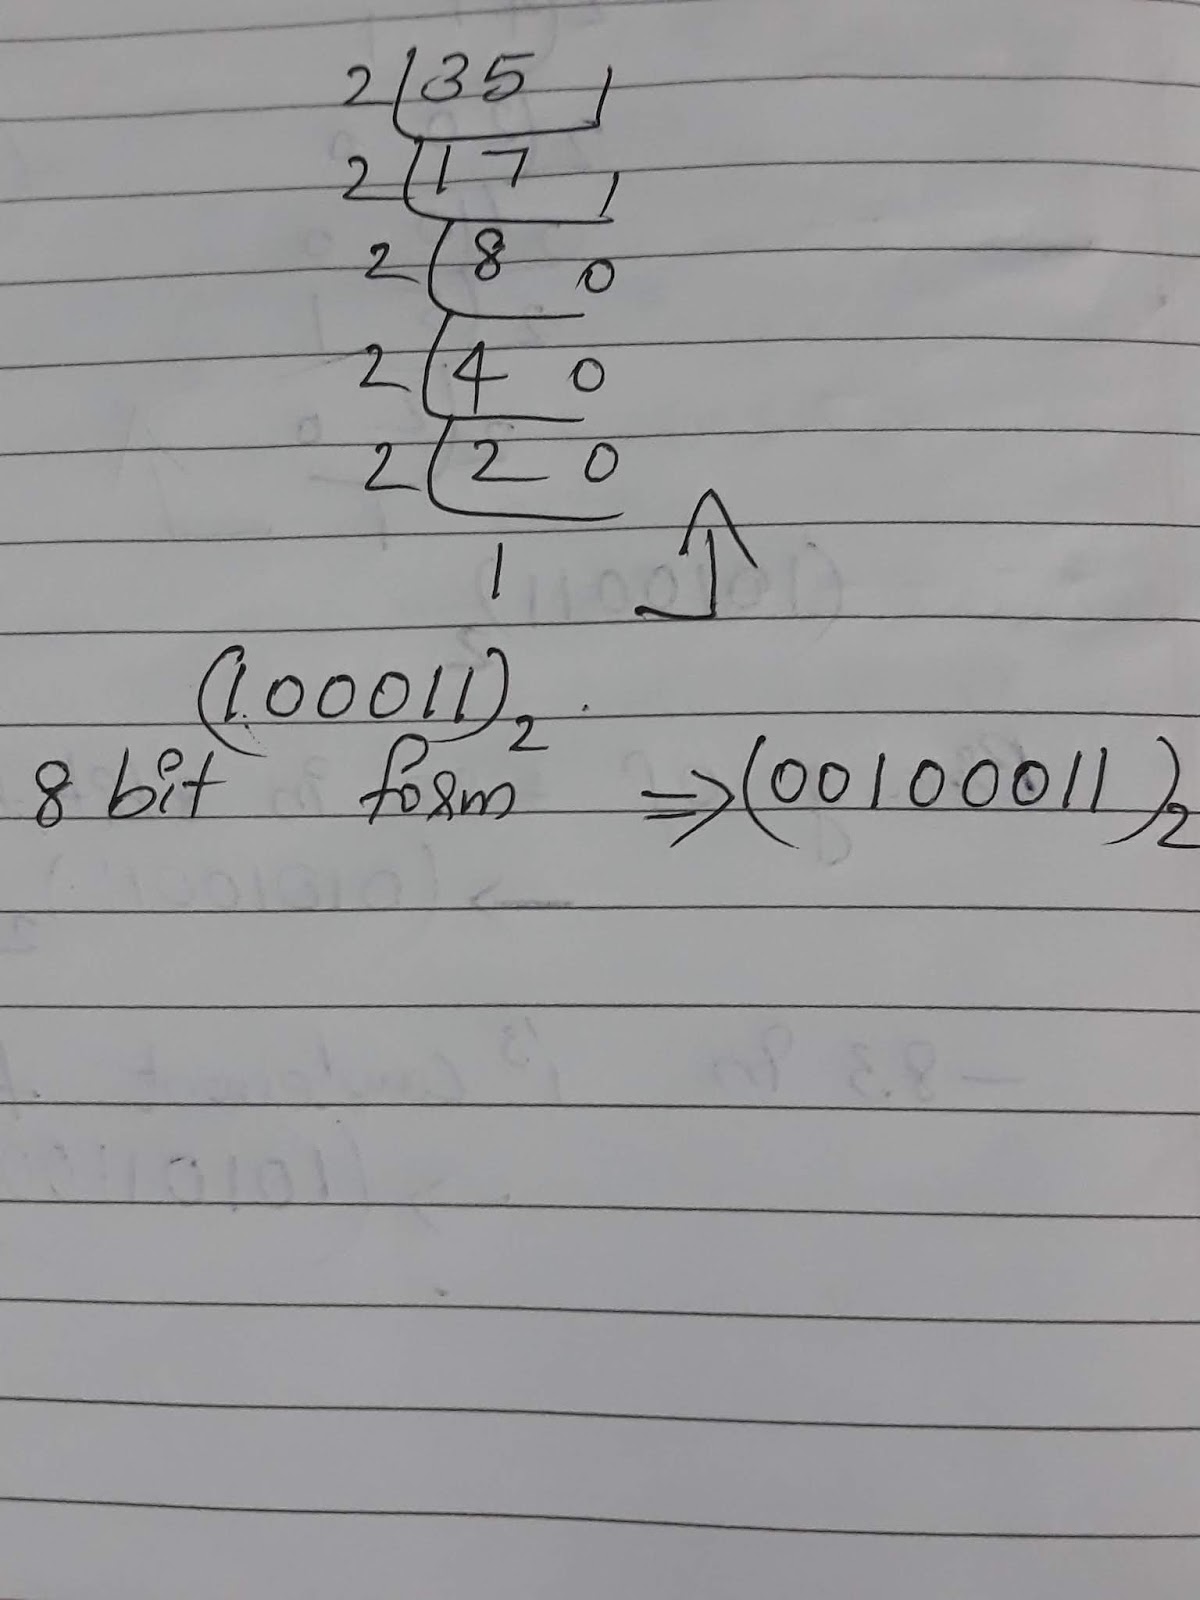 2 35 1
2 17 1
2 8 0
2 4 0
2 2 0
1
(100011)2
8 bit form ⇒ (00100011)2